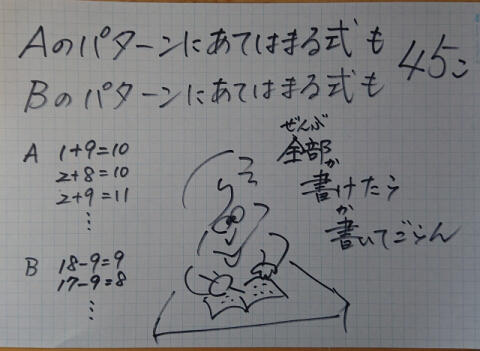 Aのパターンにあてはまる式も
Bのパターンにあてはまる式も
45こ
A 1+9=10
2+8=10
2+9=11
⋮
B 18-9=9
17-9=8
⋮
ぜんぶ
全部
か
書けたら
か
書いてごらん